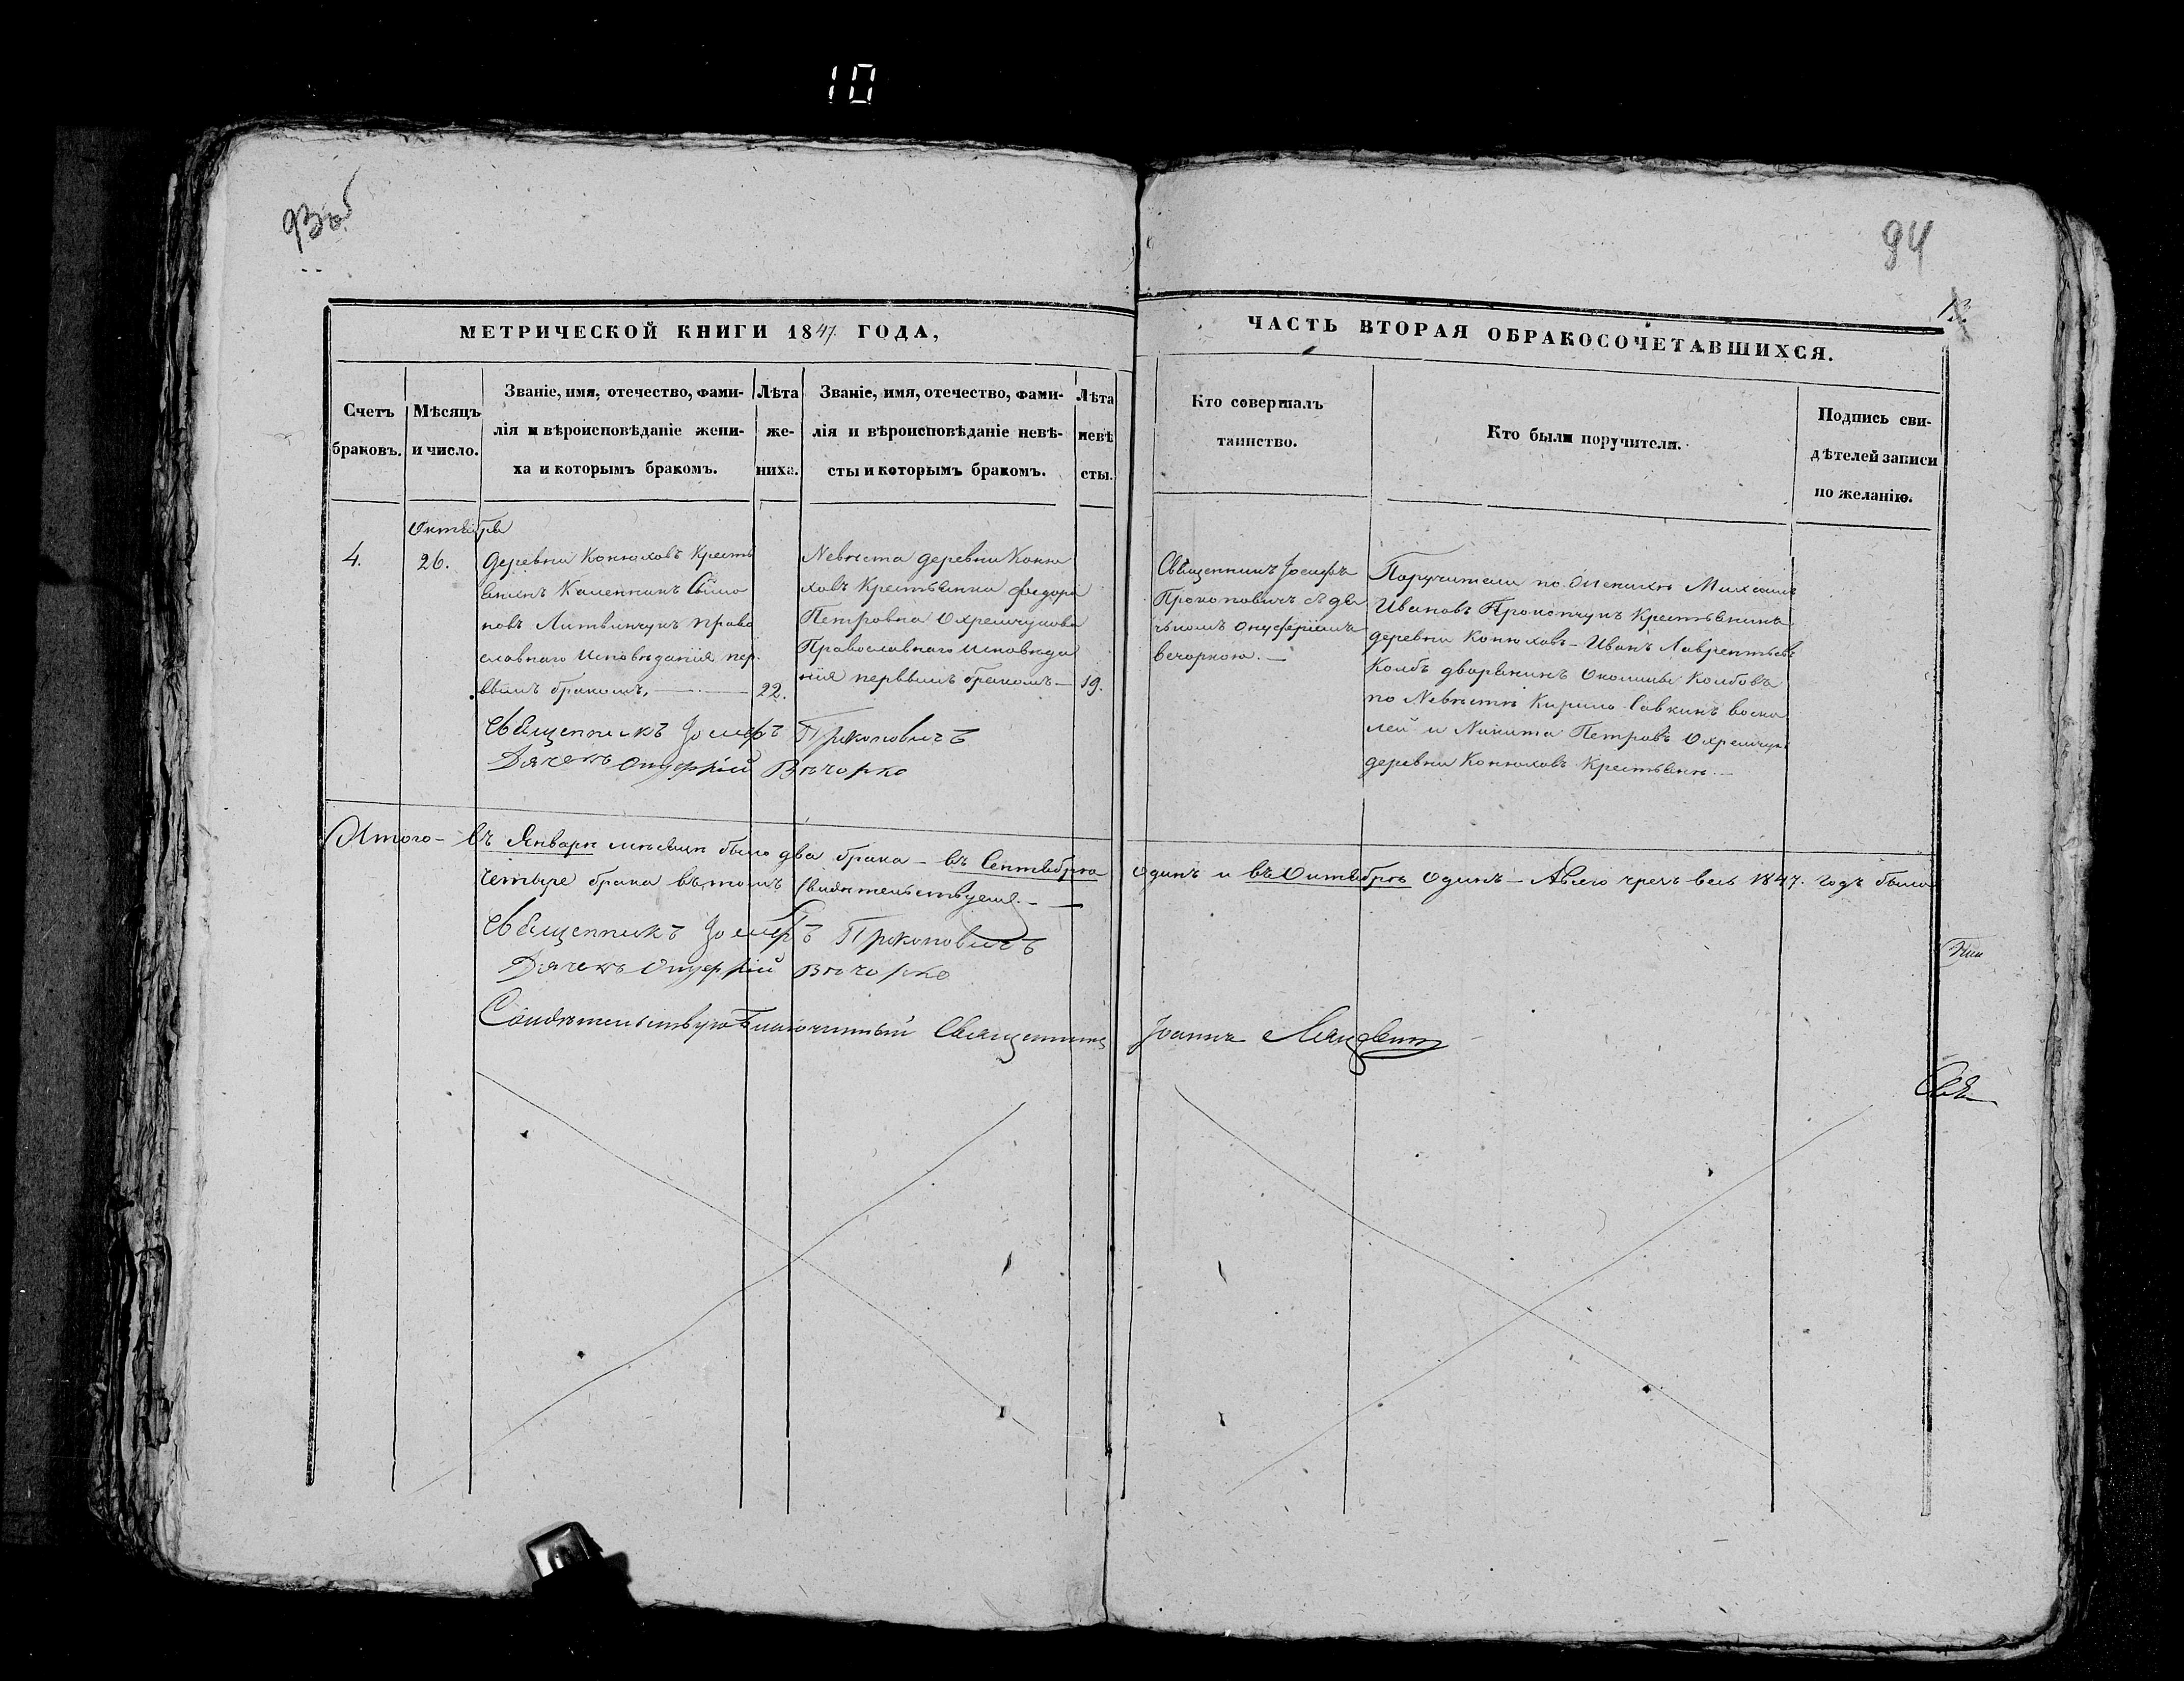 10
93об.
94
МЕТРИЧЕСКОЙ КНИГИ 1847 ГОДА,
ЧАСТЬ ВТОРАЯ ОБРАКОСОЧЕТАВШИХСЯ.
Счетъ
браковъ.
Мѣсяцъ
и число.
Званіе, имя, отечество, фами-
лія и вѣроисповѣданіе жени-
ха и которымъ бракомъ.
Лѣта
же-
ниха.
Званіе, имя, отечество, фами-
лія и вѣроисповѣданіе невѣ-
сты и которымъ бракомъ.
Лѣта
невѣ
сты.
Кто совершалъ
таинство.
Кто были поручители.
Подпись сви-
дѣтелей записи
по желанію.
Октября
4.
26.
Деревни Конюховъ Кресть
янинъ Каленникъ Симо
новъ Литвинчукъ Право
славнаго исповѣданія пер-
вымъ бракомъ.
22.
Невѣста деревни Коню
ховъ Крестьянка Федора
Петровна Охремчукова
Православнаго исповѣда
нія первымъ бракомъ
19.
Священникъ Іосифъ
Прокоповичъ съ дья
чкомъ Онуфріемъ
Вечоркою.
Поручители по Женихѣ Михаилъ
Ивановъ Прокопчукъ Крестьянинъ
деревни Конюховъ – Иванъ Лаврентьевъ
Колбъ дворянинъ Околицы Колбовъ
по Невѣстѣ Кирило Савкинъ
и Никита Петровъ Охремчукъ
деревни Конюховъ Крестьяне.
Священникъ Іосифъ Прокоповичъ
Дячекъ Онуфрій Вѣчорко
Итого – въ Январѣ мѣсяцѣ было два брака – въ Сентябрѣ
одинъ и въ Октябрѣ одинъ – Авсего чрезъ весь 1847. годъ было
четыре брака вътомъ свидѣтельствуемъ.
Священникъ Іосифъ Прокоповичъ
Дячекъ Онуфрій Вѣчорко
Свидѣтельствую Благочинный Священникъ Іоаннъ